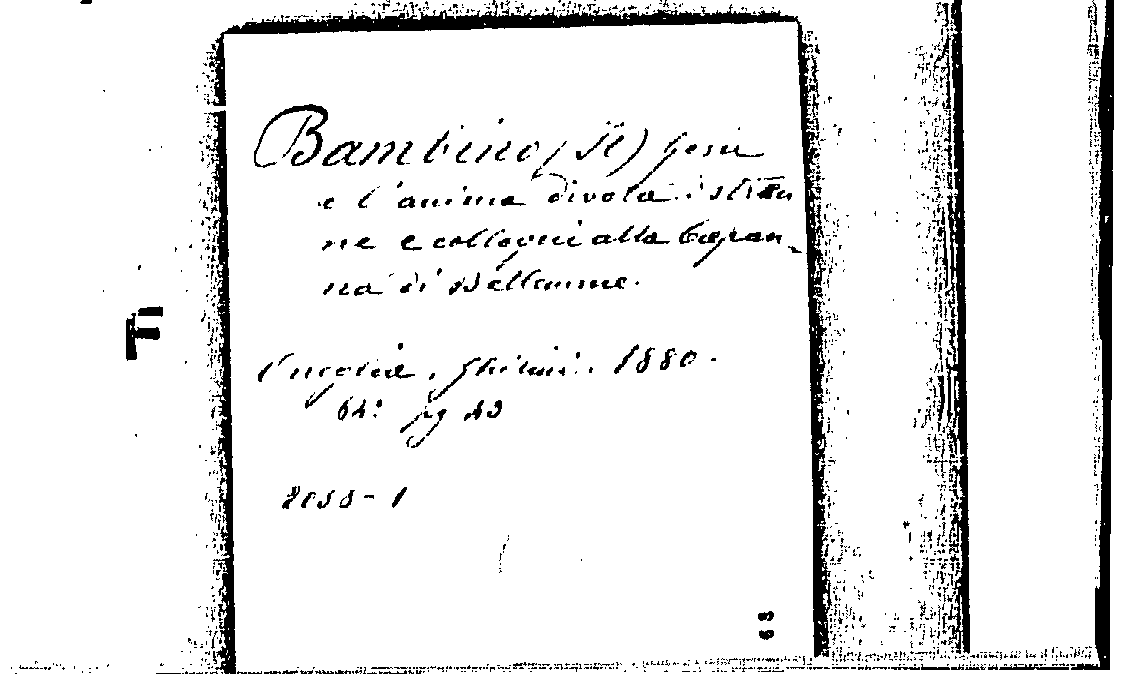 Bambino (Il) Gesù
e l'anima divota: istruzio
ne e colloqui alla Capan-
na di Betlemme.
Oneglia, Ghilini. 1880.
64º pg 43
2058-1
68